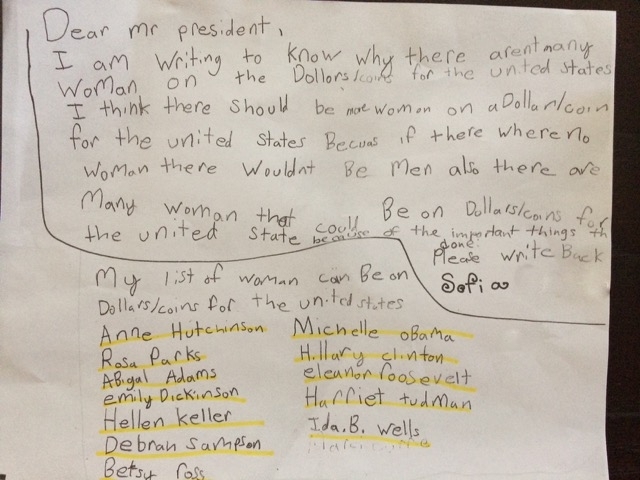 Dear mr president,
I am writing to know why there arent many
woman on the Dollors/coins for the united states
I think there should be more women on a Dollar/coin
for the united states Becuas if there where no
woman there wouldnt Be men also there are
Many woman that could Be on Dollars/coins for
the united state because of the important things th
done.
Please write Back
Sofia
My list of woman can Be on
Dollars/coins for the united states
Anne Hutchinson
Rosa Parks
Abigal Adams
emily Dickinson
Hellen keller
Debrah sampson
Betsy ross
Michelle obama
Hillary clinton
eleanor roosevelt
Harriet tudman
Ida.B. wells